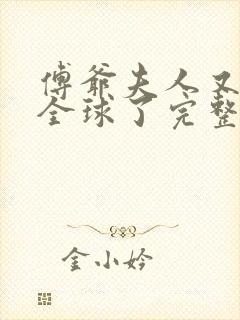 傅爷夫人又
全球了完整
金小妗